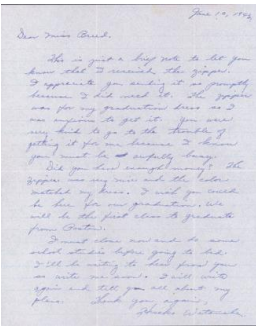 June 12, 1942
Dear Miss Breed,
This is just a brief note to let you
know that I received the zipper.
I appreciate you sending it so promptly
because I did need it. The zipper
was for my graduation dress so I
was anxious to get it. You were
very kind to go to the trouble of
getting it for me because I know
you must be awfully busy.
Did you have enough money? The
zipper was very nice and the color
matched my dress. I wish you could
be here for our graduation. We
will be the first class to graduate
from Poston.
I must close now and do some
school studies before going to bed.
I'll be waiting to hear from you
so write me soon. I will write
again and tell you all about my
plans. Thank you again,
Watanabe